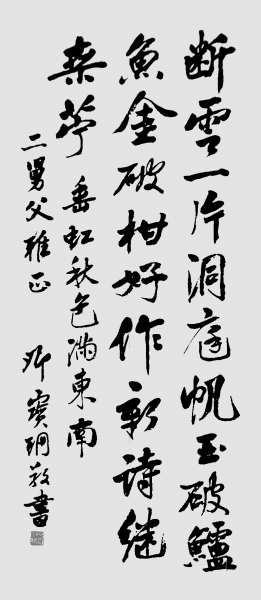 断雲一片洞庭帆玉破鱸
魚金破柑好作新詩継
桒苧垂虹秋色滿東南
二男父雅正 邓寳珊敬書